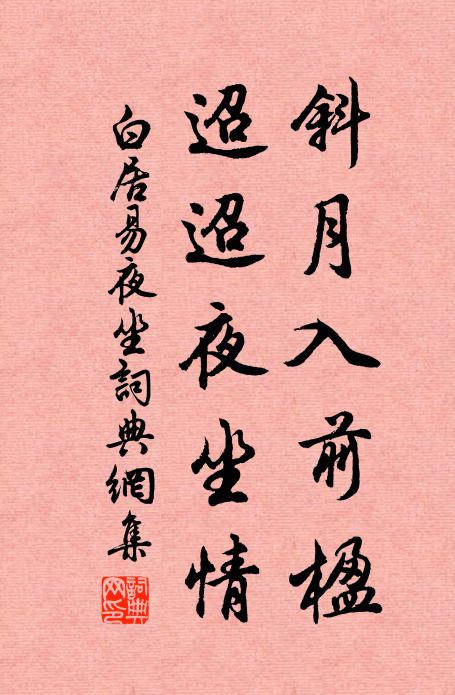 斜月入前楹
迢迢夜坐情
白居易夜坐詞典網集
詞典網印